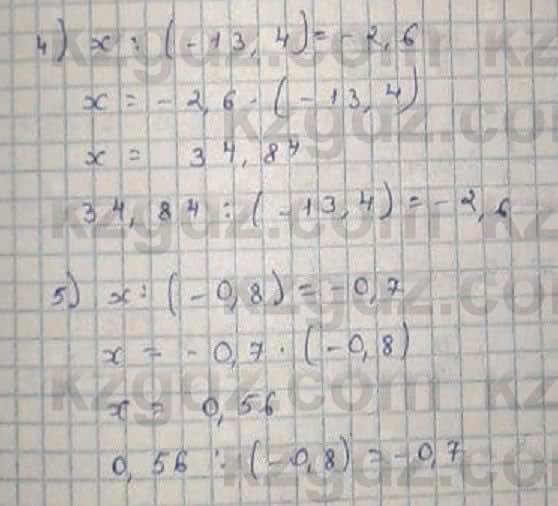 4) x : (-13,4) = -2,6
x = -2,6 · (-13,4)
x = 34,84
34,84 : (-13,4) = -2,6
5) x : (-0,8) = -0,7
x = -0,7 · (-0,8)
x = 0,56
0,56 : (-0,8) = -0,7
kzgdz.com